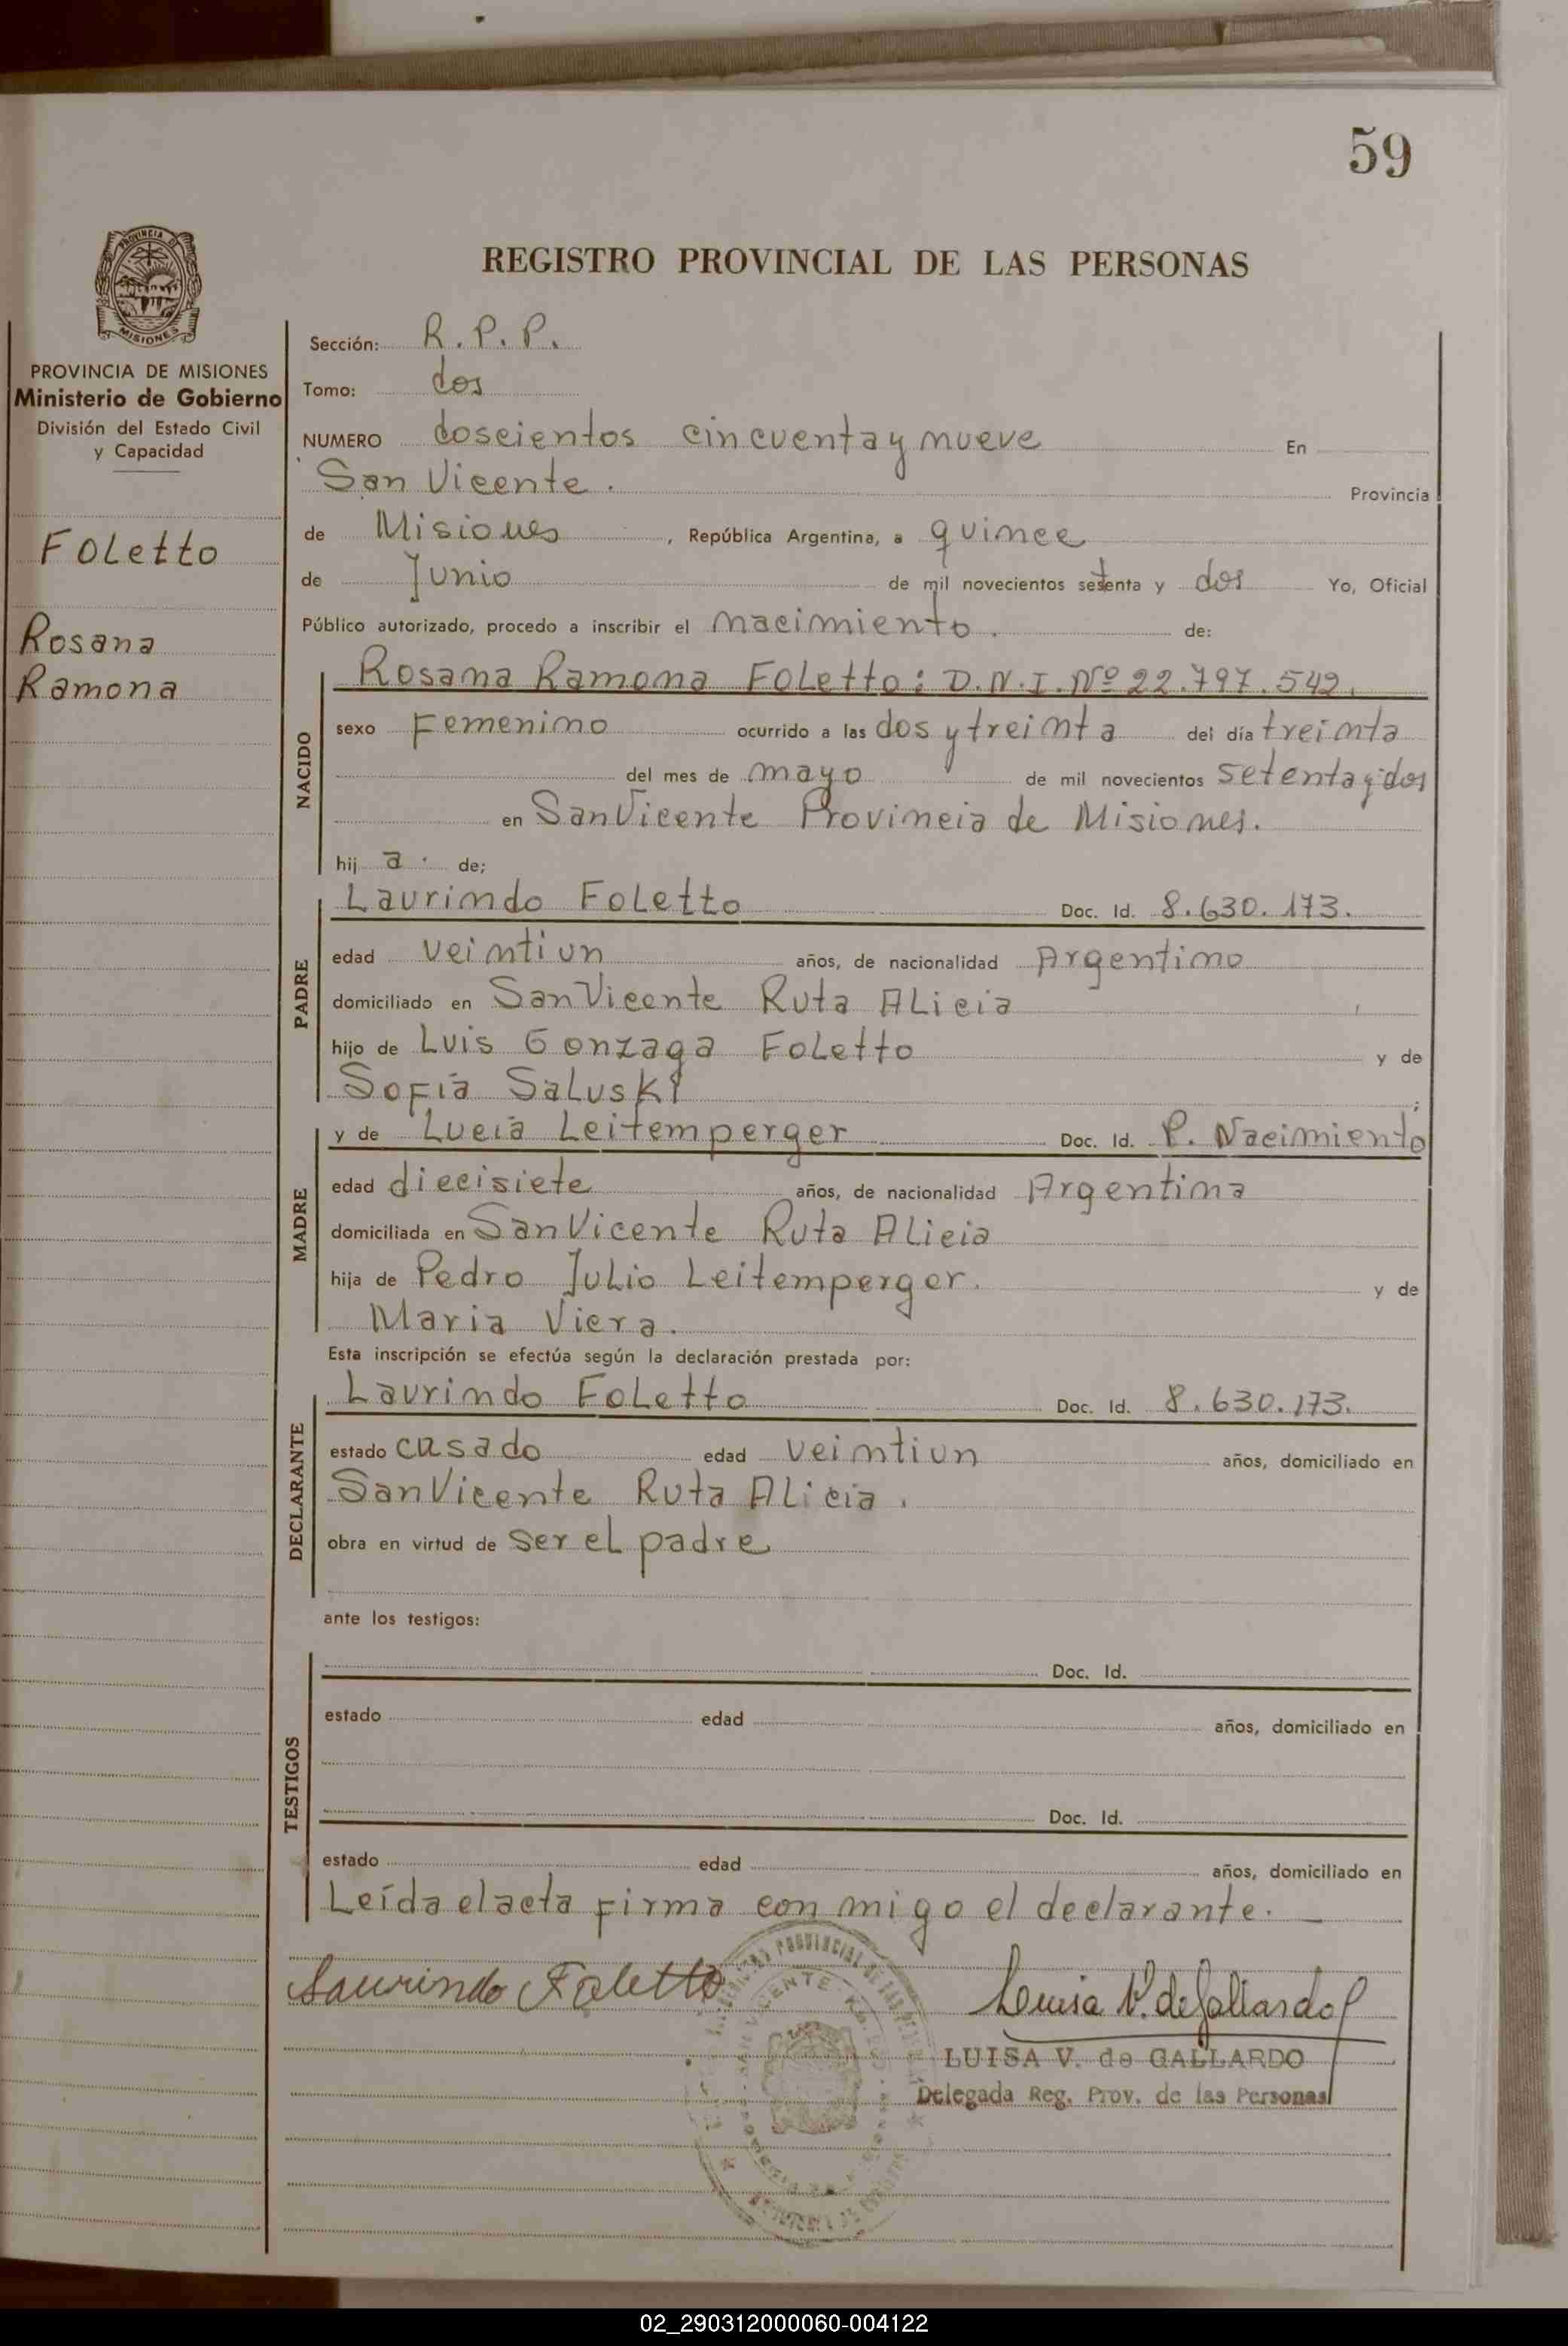 59
REGISTRO PROVINCIAL DE LAS PERSONAS
PROVINCIA DE
MISIONES
PROVINCIA DE MISIONES
Ministerio de Gobierno
División del Estado Civil
y Capacidad
Foletto
Rosana
Ramona
Sección: R. P. P.
Tomo: dos
NUMERO doscientos cincuenta y nueve En
San Vicente. Provincia
de Misiones, República Argentina, a quince
de Junio de mil novecientos setenta y dos Yo, Oficial
Público autorizado, procedo a inscribir el nacimiento. de:
NACIDO
Rosana Ramona Foletto: D.N.I. Nº 22.797.542.
sexo Femenino ocurrido a las dos y treinta del día treinta
del mes de mayo de mil novecientos setenta y dos
en San Vicente Provincia de Misiones.
hij a. de;
PADRE
Laurindo Foletto Doc. Id. 8.630.173.
edad veintiun años, de nacionalidad Argentino
domiciliado en San Vicente Ruta Alicia
hijo de Luis Gonzaga Foletto y de
Sofía Saluski;
MADRE
y de Lucía Leitemperger Doc. Id. P. Nacimiento
edad diecisiete años, de nacionalidad Argentina
domiciliada en San Vicente Ruta Alicia
hija de Pedro Julio Leitemperger. y de
Maria Viera.
Esta inscripción se efectúa según la declaración prestada por:
DECLARANTE
Laurindo Foletto Doc. Id. 8.630.173.
estado casado edad veintiun años, domiciliado en
San Vicente Ruta Alicia.
obra en virtud de ser el padre
ante los testigos:
TESTIGOS
Doc. Id.
estado edad años, domiciliado en
Doc. Id.
estado edad años, domiciliado en
Leída el acta firma con migo el declarante.
Laurindo Foletto
Luisa V. de Gallardo
LUISA V. de GALLARDO
Delegada Reg. Prov. de las Personas
02_290312000060-004122